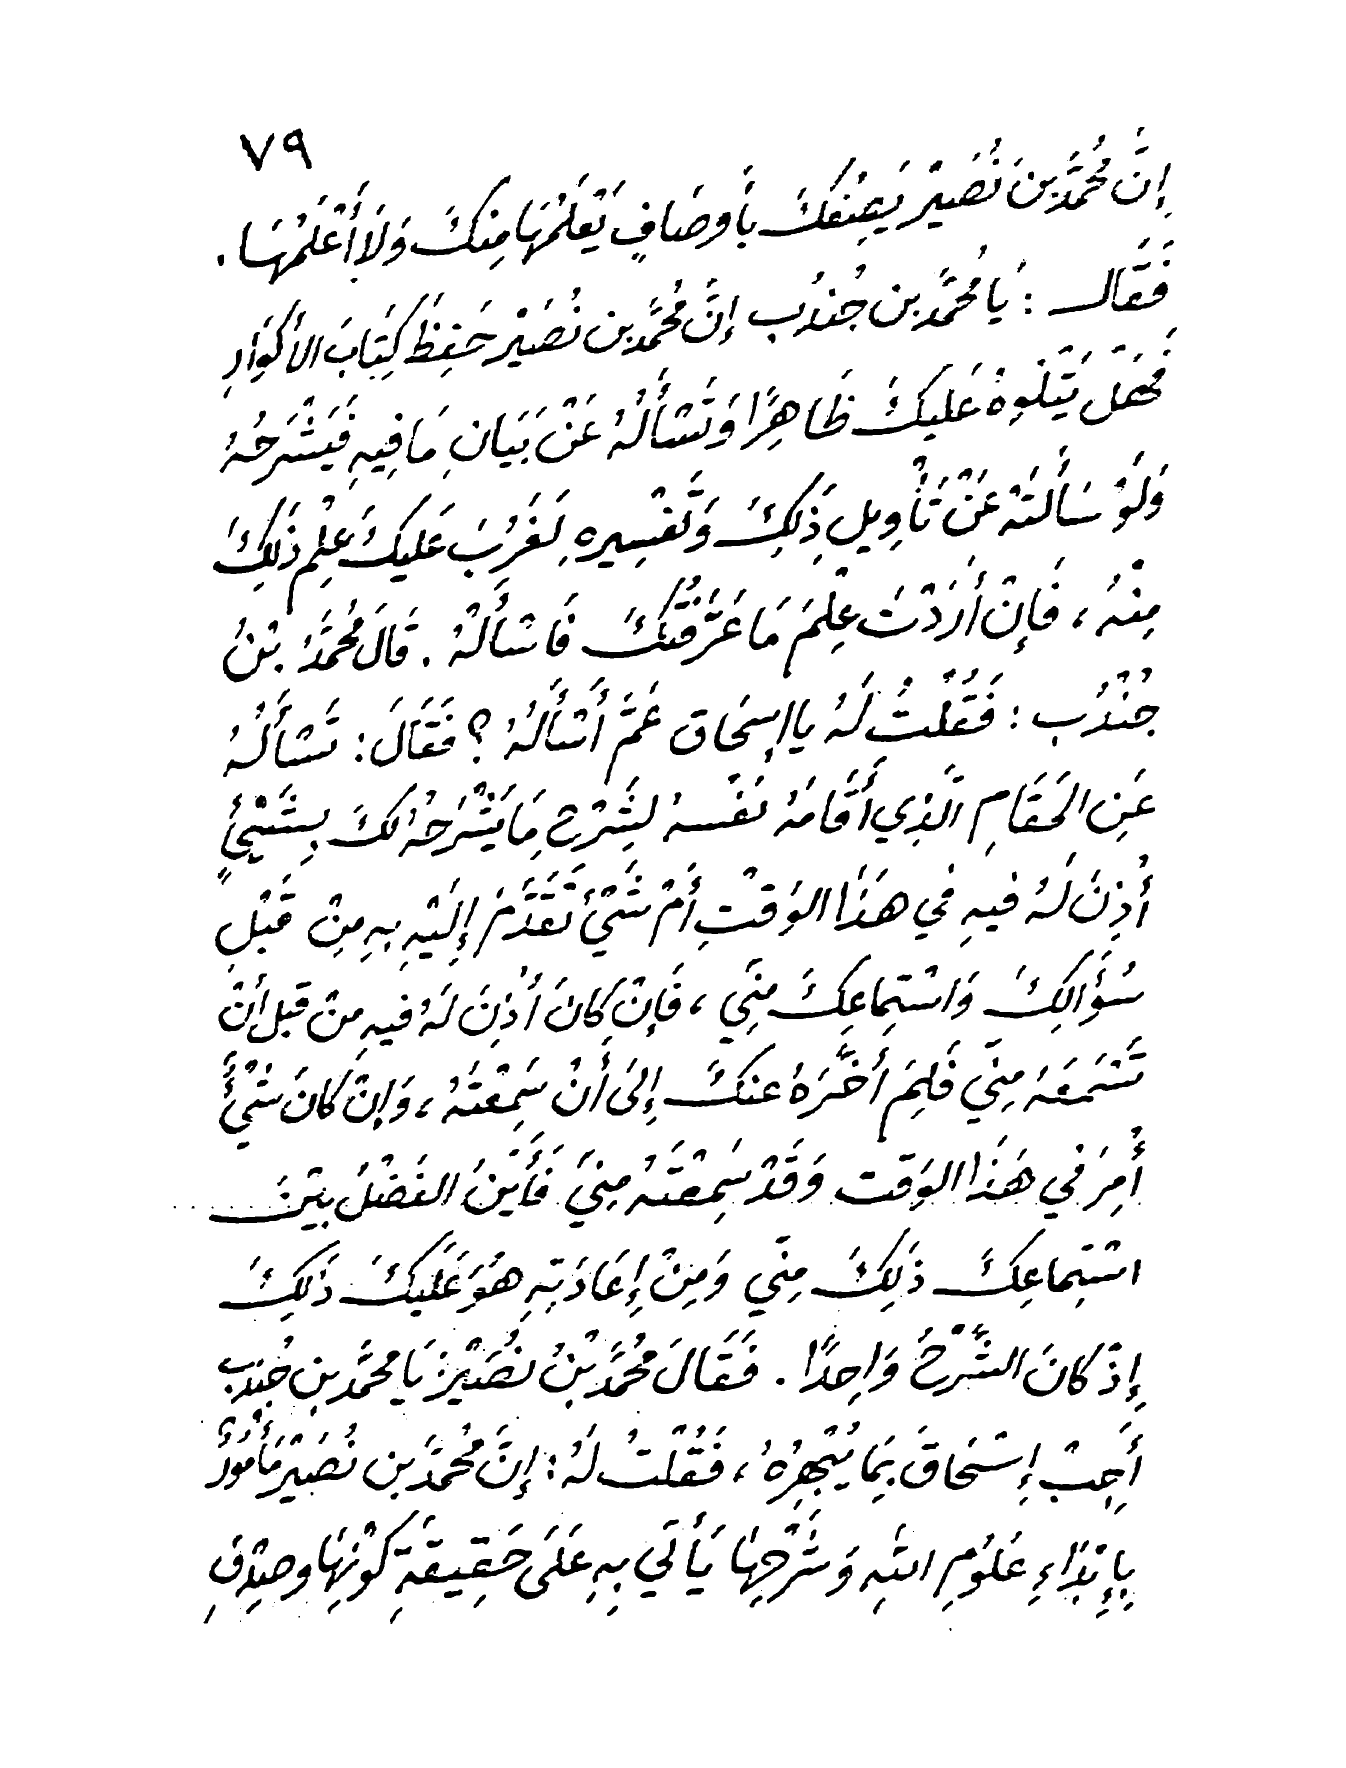 ٧٩
إِنَّ مُحَمَّدَ بنَ نُصَيْرْ يَصِفُكَ بأَوصَافٍ يَعْلَمُهَا مِنكَ وَلَا أَعْلَمُهَا .
فَقَال : يَا مُحَمَّدَ بن جُندُب إنَّ مُحَمَّد بن نُصَيْر حَفِظَ كِتَابَ الأَكوَارِ
فَهَل يَتْلُوهُ عَلَيكَ ظَاهِرًا وَتَسْأَلُهُ عَنْ بَيَانِ مَا فِيهِ فَيَشْرَحُهُ
وَلَوْ سَأَلتَهُ عَنْ تَأْوِيلِ ذَلِكَ وَتَفْسِيرِهِ لَغَرُبَ عَلَيكَ عِلمِ ذَلِكَ
مِنْهُ ، فَإِنْ أَرَدْتَ عِلْمَ مَا عَرَّفْتُكَ فَاسْأَلْهُ . قَالَ مُحَمَّدُ بْنُ
جُنْدُب : فَقُلْتُ لَهُ يا اسحَاق عَمَّ أَسْأَلُهُ ؟ فَقَالَ : تَسْأَلُهُ
عَنِ المَقَامِ الَّذِي أَقَامَهُ نَفْسهُ لِشَرْحِ مَا يَشْرَحُهُ لَكَ بِشَيْئٍ
أُذِنَ لَهُ فيهِ في هَذَا الوَقْتِ أَمْ شَيْئ تَقَدَّمَ إِلَيْهِ بِهِ مِنْ قَبْلِ
سُؤَالِكَ وَاسْتِمَاعِكَ مِنِّي ، فَإِنْ كَانَ أُذِنَ لَهُ فيهِ مِنْ قَبل أنْ
تَسْمَعَهُ مِنِّي فَلِمَ أَخَّرَهُ عنكَ إِلَى أَنْ سَمِعْتَهُ ، وَإِنْ كَانَ شَيْئٌ
أُمِرَ في هَذَا الوَقت وَقَدْ سَمِعْتَهُ مِنِّي فَأَيْنُ الفَضْلُ بيْنَ
اسْتِمَاعِكَ ذَلِكَ مِنِّي وَمِنْ إِعَادَتِهِ هُوَ عَلَيكَ ذَلِكَ
إِذْ كَانَ الشَّرْحُ وَاحِدًا . فَقَالَ مُحَمَّدُ بْنُ نُصَيْر يَا مُحَمَّد بن جُندب
أَجِبْ إِسْحَاقَ بِمَا يُبْهِرُهُ ، فَقُلْتُ لَهُ : إِنَّ مُحَمَّدَ بن نُصَيْر مَأْمُورٌ
بِإِبْدَاءِ عُلُومِ اللهِ وَشَرْحِهَا يَأْتي بِهِ عَلَى حَقِيقَةِ كَوْنِهَا وصِدْقِ